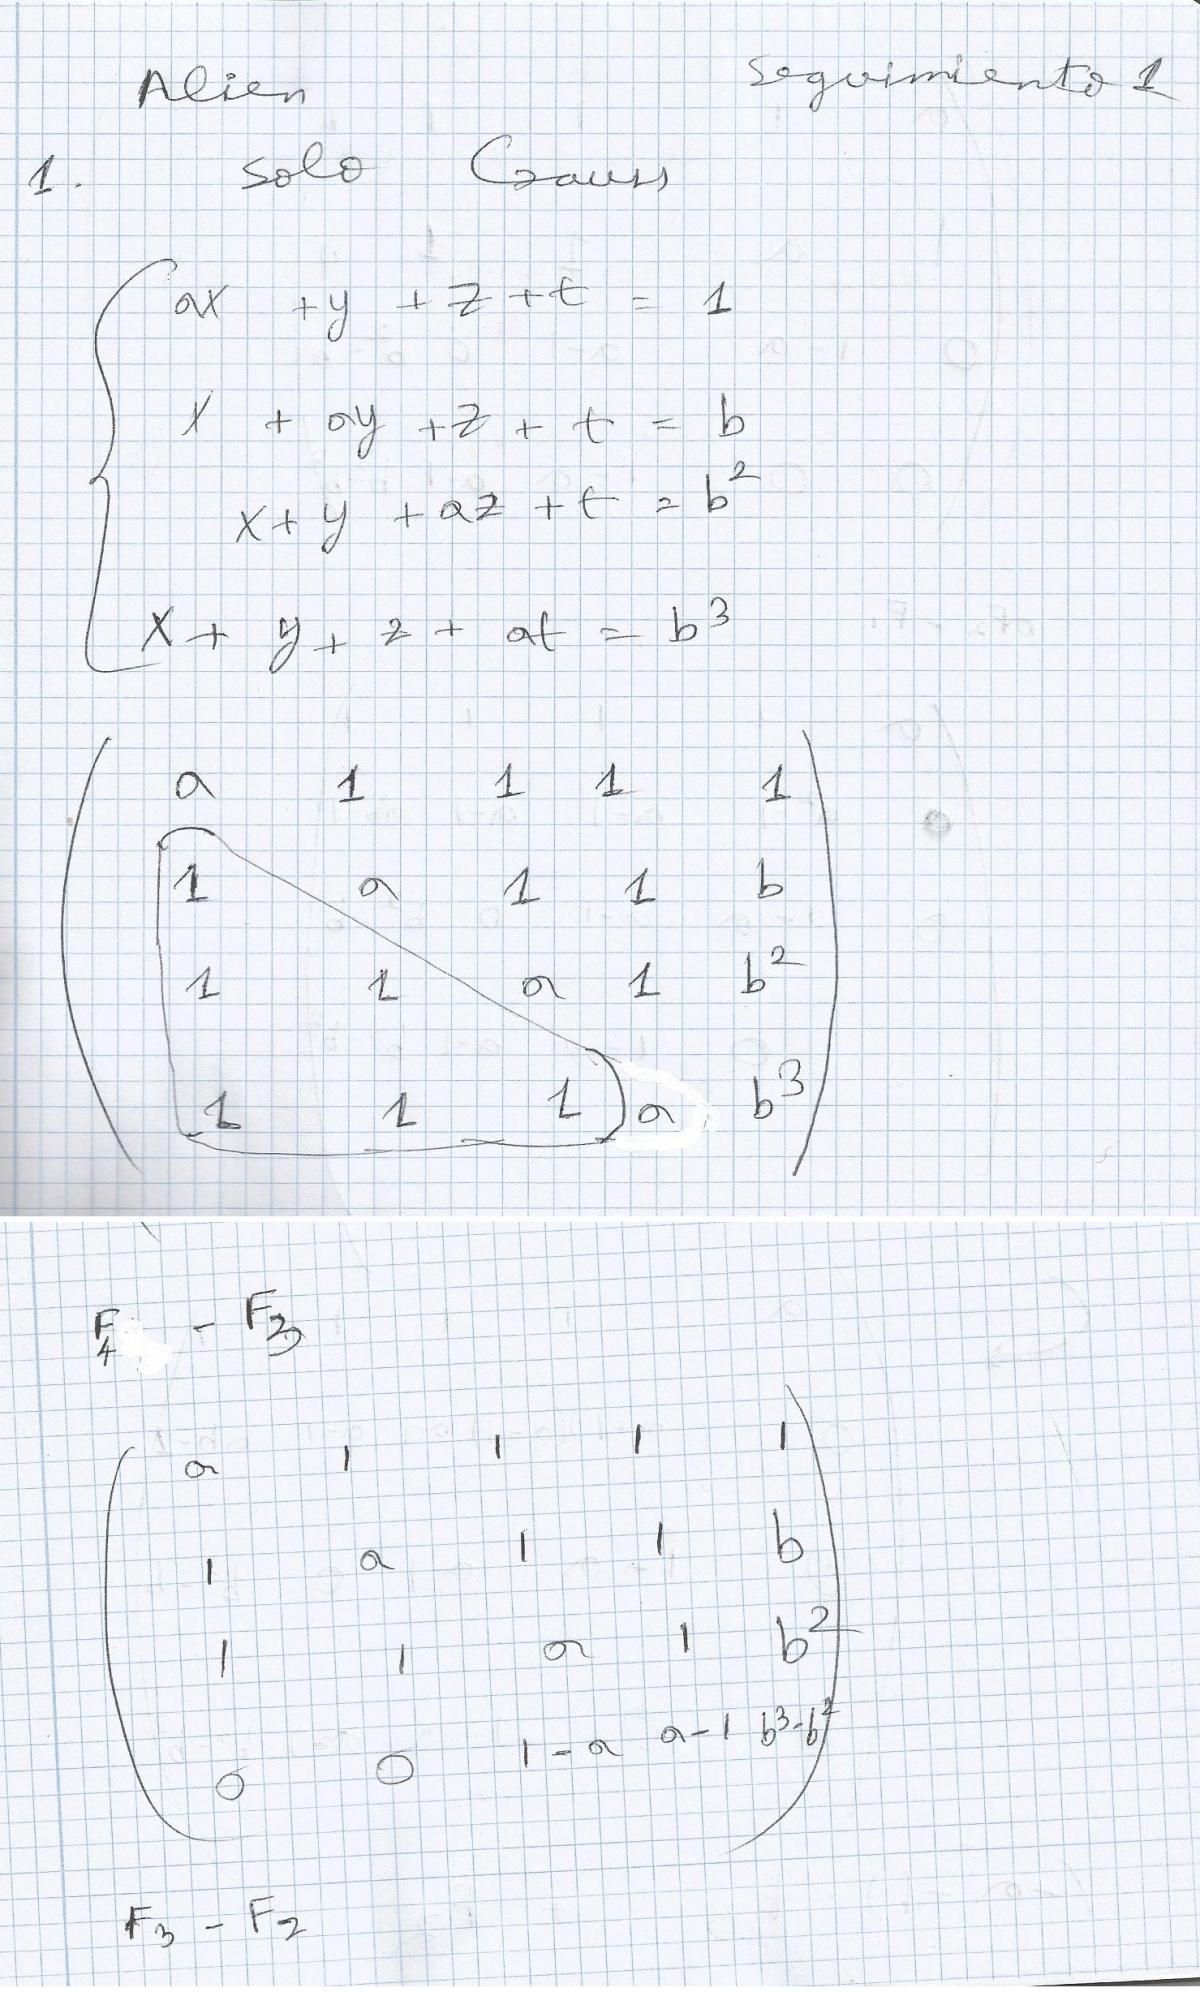 Alien Seguimiento 1
1. solo Gauss
ax + y + z + t = 1
x + ay + z + t = b
x + y + az + t = b²
x + y + z + at = b³
a 1 1 1 1
1 a 1 1 b
1 1 a 1 b²
1 1 1 a b³
F₄ - F₃
a 1 1 1 1
1 a 1 1 b
1 1 a 1 b²
0 0 1-a a-1 b³-b²
F₃ - F₂